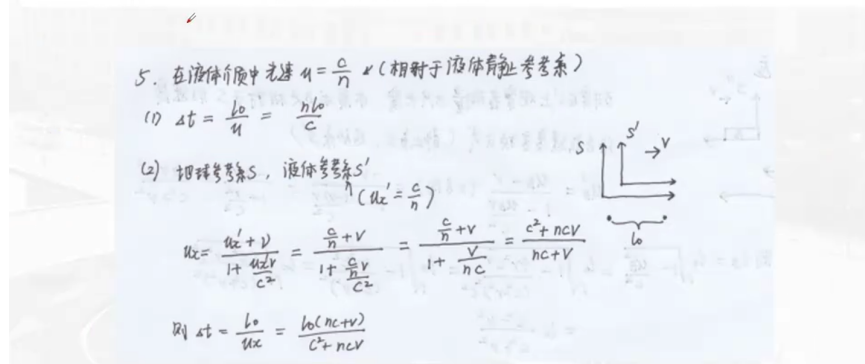 5. 在液体介质中光速 u = c/n (相对于液体静止参考系)
(1) Δt = l₀/u = nl₀/c
(2) 地球参考系S, 液体参考系S' (uₓ' = c/n)
uₓ = (uₓ' + v)/(1 + uₓ'v/c²) = (c/n + v)/(1 + (c/n)v/c²) = (c/n + v)/(1 + v/nc) = (c² + ncv)/(nc + v)
则 Δt = l₀/uₓ = l₀(nc+v)/(c² + ncv)
S S' → v
l₀